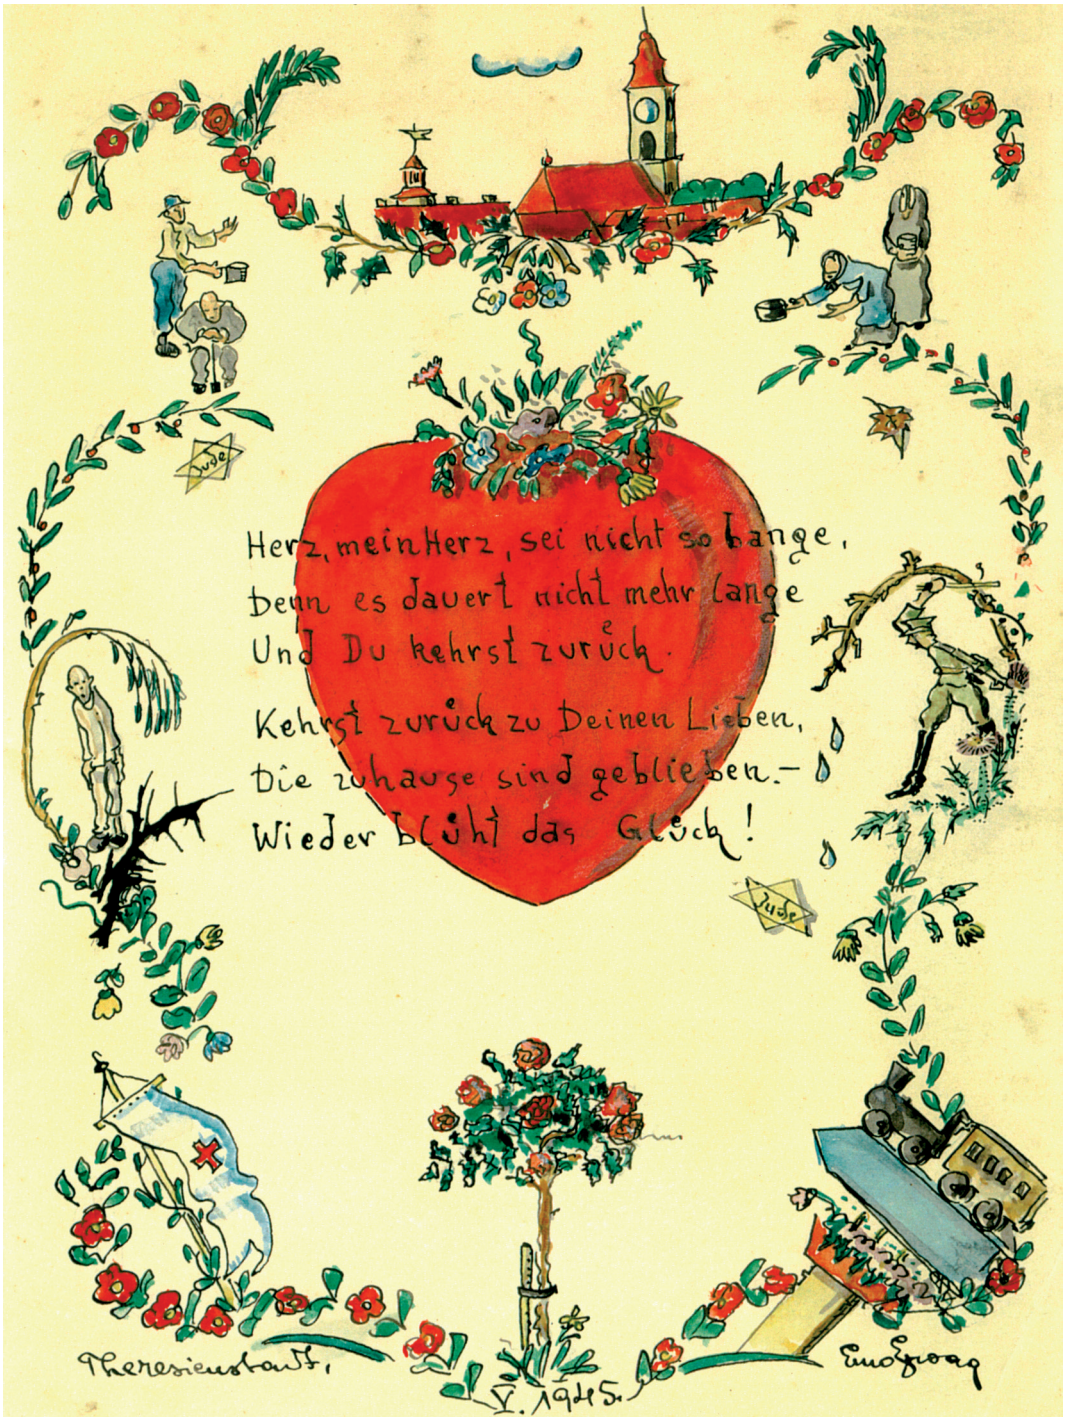 Jude
Herz, mein Herz, sei nicht so bange,
Denn es dauert nicht mehr lange
Und Du kehrst zurůck.
Kehrst zurůck zu Deinen Lieben,
Die zuhause sind geblieben.–
Wieder blůht das Glůck!
Jude
Theresienstadt,
V. 1945.